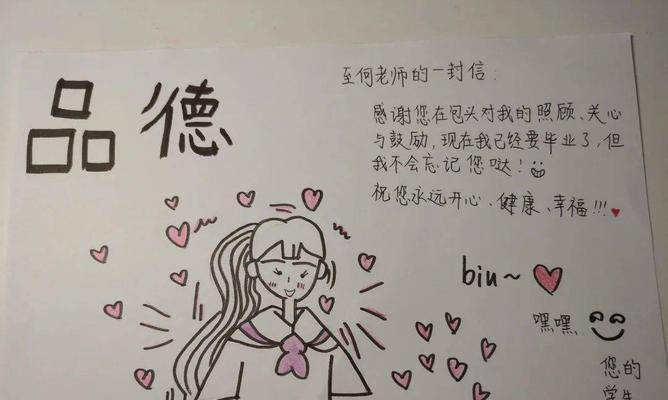 品德
至何老师的一封信:
感谢您在包头对我的照顾、关心
与鼓励,现在我已经要毕业了,但
我不会忘记您哒!
祝您永远开心、健康、幸福!!!
biu~
嘿嘿
您的
学生